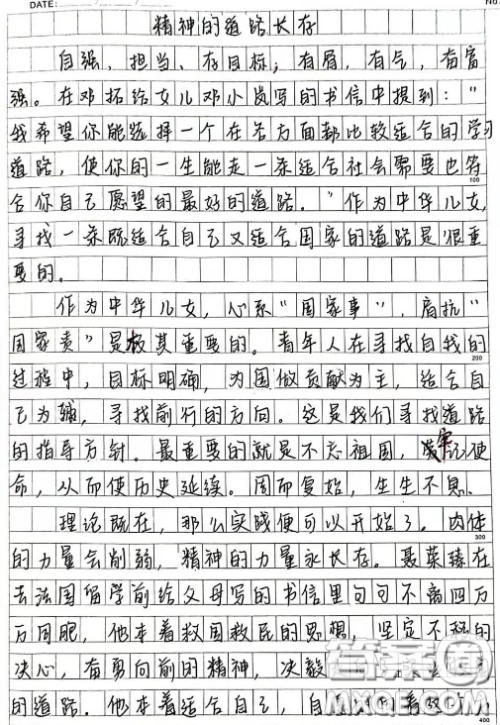 DATE:
No.
精神的道路长存
自强、担当、存目标；有眉，有气，奋富
强。在邓拓给女儿邓小岚写的书信中提到："
我希望你能选择一个在各方面都比较适合的学习
道路，使你的一生能走一条适合社会需要也符
100
合你自己愿望的最好的道路。"作为中华儿女，
寻找一条既适合自己又适合国家的道路是很重
要的。
作为中华儿女，心系"国家事"，肩抗"
国家责"是极其重要的。青年人在寻找自我的
200
过程中，目标明确，为国做贡献为主，适合自
己为辅，寻找前行的方向。这是我们寻找道路
的指导方针。最重要的就是不忘祖国，牢记使
命，从而使历史延续。周而复始，生生不息。
理论既在，那么实践便可以开始了。肉体
300
的力量会削弱，精神的力量永长存。聂荣臻在
去法国留学前给父母写的书信里句句不离四万
万同胞，他本着救国救民的思想，坚定不移的
决心，奋勇向前的精神，决毅
的道路。他本着适合自己，
400
答案圈
MXQE.COM